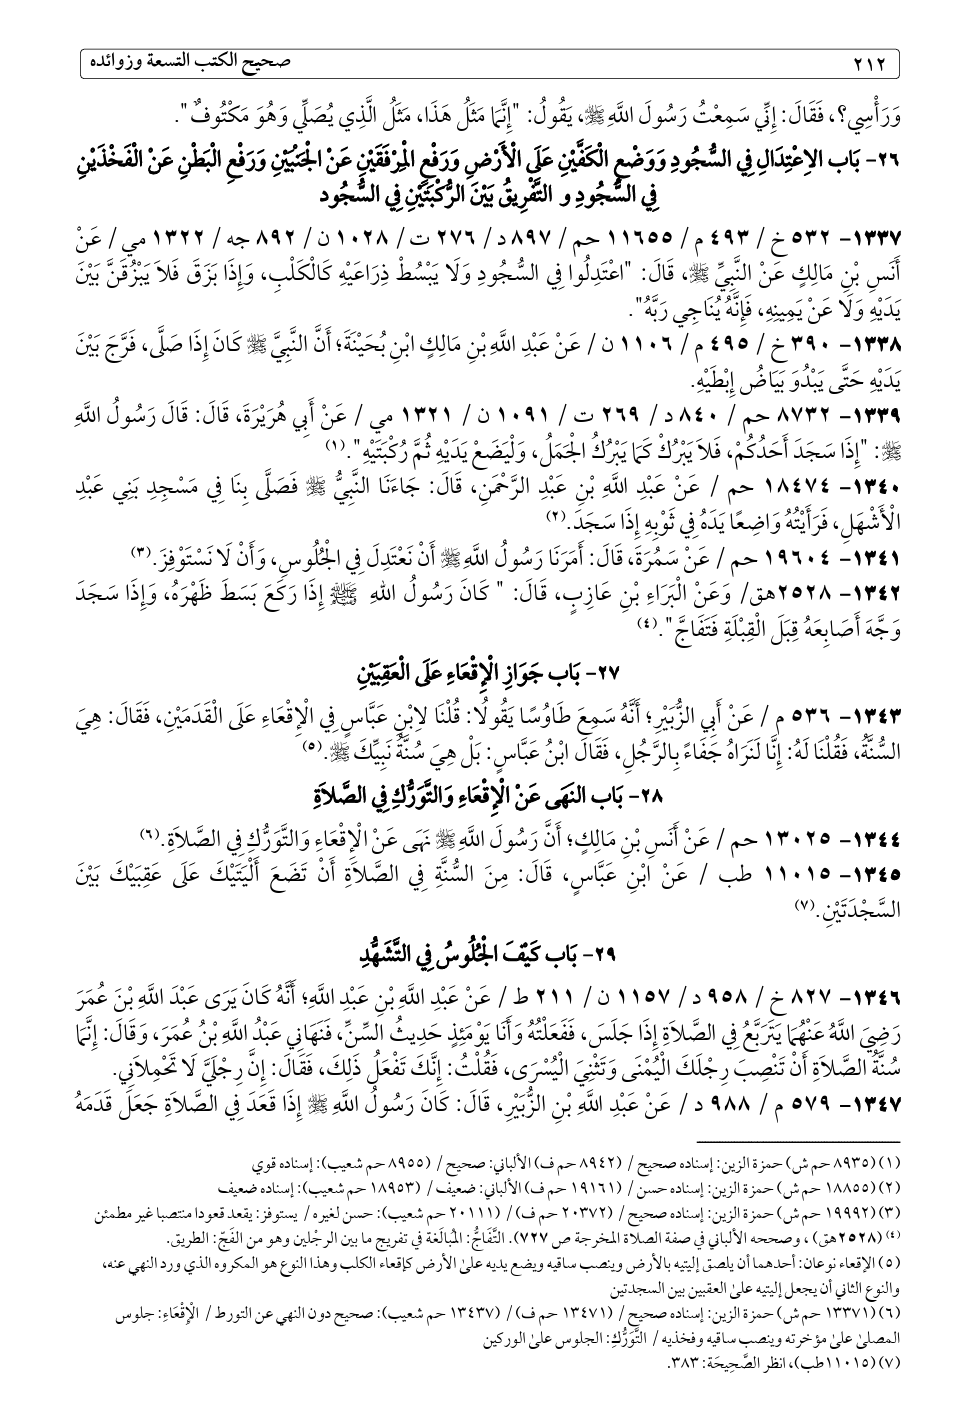 ٢١٢ صحيح الكتب التسعة وزوائده
وَرَأْسِي؟، فَقَالَ: إِنِّي سَمِعْتُ رَسُولَ اللَّهِ ﷺ، يَقُولُ: "إِنَّمَا مَثَلُ هَذَا، مَثَلُ الَّذِي يُصَلِّي وَهُوَ مَكْتُوفٌ".
٢٦- بَاب الِاعْتِدَالِ فِي السُّجُودِ وَوَضْعِ الْكَفَّيْنِ عَلَى الْأَرْضِ وَرَفْعِ الْمِرْفَقَيْنِ عَنْ الْجَنْبَيْنِ وَرَفْعِ الْبَطْنِ عَنْ الْفَخْذَيْنِ
فِي السُّجُودِ و التَّفْرِيقُ بَيْنَ الرُّكْبَتَيْنِ فِي السُّجُود
١٣٣٧- ٥٣٢ خ/ ٤٩٣ م/ ١١٦٥٥ حم/ ٨٩٧ د/ ٢٧٦ ت/ ١٠٢٨ ن/ ٨٩٢ جه/ ١٣٢٢ مي/ عَنْ
أَنَسِ بْنِ مَالِكٍ عَنْ النَّبِيِّ ﷺ، قَالَ: "اعْتَدِلُوا فِي السُّجُودِ وَلَا يَبْسُطْ ذِرَاعَيْهِ كَالْكَلْبِ، وَإِذَا بَزَقَ فَلاَ يَبْزُقَنَّ بَيْنَ
يَدَيْهِ وَلَا عَنْ يَمِينِهِ، فَإِنَّهُ يُنَاجِي رَبَّهُ".
١٣٣٨- ٣٩٠ خ/ ٤٩٥ م/ ١١٠٦ ن/ عَنْ عَبْدِ اللَّهِ بْنِ مَالِكٍ ابْنِ بُحَيْنَةَ؛ أَنَّ النَّبِيَّ ﷺ كَانَ إِذَا صَلَّى، فَرَّجَ بَيْنَ
يَدَيْهِ حَتَّى يَبْدُوَ بَيَاضُ إِبْطَيْهِ.
١٣٣٩- ٨٧٣٢ حم/ ٨٤٠ د/ ٢٦٩ ت/ ١٠٩١ ن/ ١٣٢١ مي/ عَنْ أَبِي هُرَيْرَةَ، قَالَ: قَالَ رَسُولُ اللَّهِ
ﷺ: "إِذَا سَجَدَ أَحَدُكُمْ، فَلاَ يَبْرُكْ كَمَا يَبْرُكُ الْجَمَلُ، وَلْيَضَعْ يَدَيْهِ ثُمَّ رُكْبَتَيْهِ".(١)
١٣٤٠- ١٨٤٧٤ حم/ عَنْ عَبْدِ اللَّهِ بْنِ عَبْدِ الرَّحْمَنِ، قَالَ: جَاءَنَا النَّبِيُّ ﷺ فَصَلَّى بِنَا فِي مَسْجِدِ بَنِي عَبْدِ
الْأَشْهَلِ، فَرَأَيْتُهُ وَاضِعًا يَدَهُ فِي ثَوْبِهِ إِذَا سَجَدَ.(٢)
١٣٤١- ١٩٦٠٤ حم/ عَنْ سَمُرَةَ، قَالَ: أَمَرَنَا رَسُولُ اللَّهِ ﷺ أَنْ نَعْتَدِلَ فِي الْجُلُوسِ، وَأَنْ لَا نَسْتَوْفِزَ.(٣)
١٣٤٢- ٢٥٢٨هق/ وَعَنْ الْبَرَاءِ بْنِ عَازِبٍ، قَالَ: " كَانَ رَسُولُ اللهِ ﷺ إِذَا رَكَعَ بَسَطَ ظَهْرَهُ، وَإِذَا سَجَدَ
وَجَّهَ أَصَابِعَهُ قِبَلَ الْقِبْلَةِ فَتَفَاجَّ".(٤)
٢٧- بَاب جَوَازِ الْإِقْعَاءِ عَلَى الْعَقِبَيْنِ
١٣٤٣- ٥٣٦ م/ عَنْ أَبِي الزُّبَيْرِ؛ أَنَّهُ سَمِعَ طَاوُسًا يَقُولُا: قُلْنَا لِابْنِ عَبَّاسٍ فِي الْإِقْعَاءِ عَلَى الْقَدَمَيْنِ، فَقَالَ: هِيَ
السُّنَّةُ، فَقُلْنَا لَهُ: إِنَّا لَنَرَاهُ جَفَاءً بِالرَّجُلِ، فَقَالَ ابْنُ عَبَّاسٍ: بَلْ هِيَ سُنَّةُ نَبِيِّكَ ﷺ.(٥)
٢٨- بَاب النَهَى عَنْ الْإِقْعَاءِ وَالتَّوَرُّكِ فِي الصَّلاَةِ
١٣٤٤- ١٣٠٢٥ حم/ عَنْ أَنَسِ بْنِ مَالِكٍ؛ أَنَّ رَسُولَ اللَّهِ ﷺ نَهَى عَنْ الْإِقْعَاءِ وَالتَّوَرُّكِ فِي الصَّلاَةِ.(٦)
١٣٤٥- ١١٠١٥ طب/ عَنْ ابْنِ عَبَّاسٍ، قَالَ: مِنَ السُّنَّةِ فِي الصَّلاَةِ أَنْ تَضَعَ أَلْيَتَيْكَ عَلَى عَقِبَيْكَ بَيْنَ
السَّجْدَتَيْنِ.(٧)
٢٩- بَاب كَيْفَ الْجُلُوسُ فِي التَّشَهُّدِ
١٣٤٦- ٨٢٧ خ/ ٩٥٨ د/ ١١٥٧ ن/ ٢١١ ط/ عَنْ عَبْدِ اللَّهِ بْنِ عَبْدِ اللَّهِ؛ أَنَّهُ كَانَ يَرَى عَبْدَ اللَّهِ بْنَ عُمَرَ
رَضِيَ اللَّهُ عَنْهُمَا يَتَرَبَّعُ فِي الصَّلاَةِ إِذَا جَلَسَ، فَفَعَلْتُهُ وَأَنَا يَوْمَئِذٍ حَدِيثُ السِّنِّ، فَنَهَانِي عَبْدُ اللَّهِ بْنُ عُمَرَ، وَقَالَ: إِنَّمَا
سُنَّةُ الصَّلاَةِ أَنْ تَنْصِبَ رِجْلَكَ الْيُمْنَى وَتَثْنِيَ الْيُسْرَى، فَقُلْتُ: إِنَّكَ تَفْعَلُ ذَلِكَ، فَقَالَ: إِنَّ رِجْلَيَّ لَا تَحْمِلاَنِي.
١٣٤٧- ٥٧٩ م/ ٩٨٨ د/ عَنْ عَبْدِ اللَّهِ بْنِ الزُّبَيْرِ، قَالَ: كَانَ رَسُولُ اللَّهِ ﷺ إِذَا قَعَدَ فِي الصَّلاَةِ جَعَلَ قَدَمَهُ
(١) (٨٩٣٥ حم ش) حمزة الزين: إسناده صحيح/ (٨٩٤٢ حم ف) الألباني: صحيح/ (٨٩٥٥ حم شعيب): إسناده قوي
(٢) (١٨٨٥٥ حم ش) حمزة الزين: إسناده حسن/ (١٩١٦١ حم ف) الألباني: ضعيف/ (١٨٩٥٣ حم شعيب): إسناده ضعيف
(٣) (١٩٩٩٢ حم ش) حمزة الزين: إسناده صحيح/ (٢٠٣٧٢ حم ف)/ (٢٠١١١ حم شعيب): حسن لغيره/ يستوفز: يقعد قعودا منتصبا غير مطمئن
(٤) (٢٥٢٨هق) ، وصححه الألباني في صفة الصلاة المخرجة ص ٧٢٧). التَّفَاجُّ: المُبالَغة في تفريج ما بين الرجْلين وهو من الفَجّ: الطريق.
(٥) الإقعاء نوعان: أحدهما أن يلصق إليتيه بالأرض وينصب ساقيه ويضع يديه على الأرض كإقعاء الكلب وهذا النوع هو المكروه الذي ورد النهي عنه،
والنوع الثاني أن يجعل إليتيه على العقبين بين السجدتين
(٦) (١٣٣٧١ حم ش) حمزة الزين: إسناده صحيح/ (١٣٤٧١ حم ف)/ (١٣٤٣٧ حم شعيب): صحيح دون النهي عن التورط/ الْإِقْعَاءِ: جلوس
المصلى على مؤخرته وينصب ساقيه وفخذيه/ التَّوَرُّكِ: الجلوس على الوركين
(٧) (١١٠١٥طب)، انظر الصَّحِيحَة: ٣٨٣.